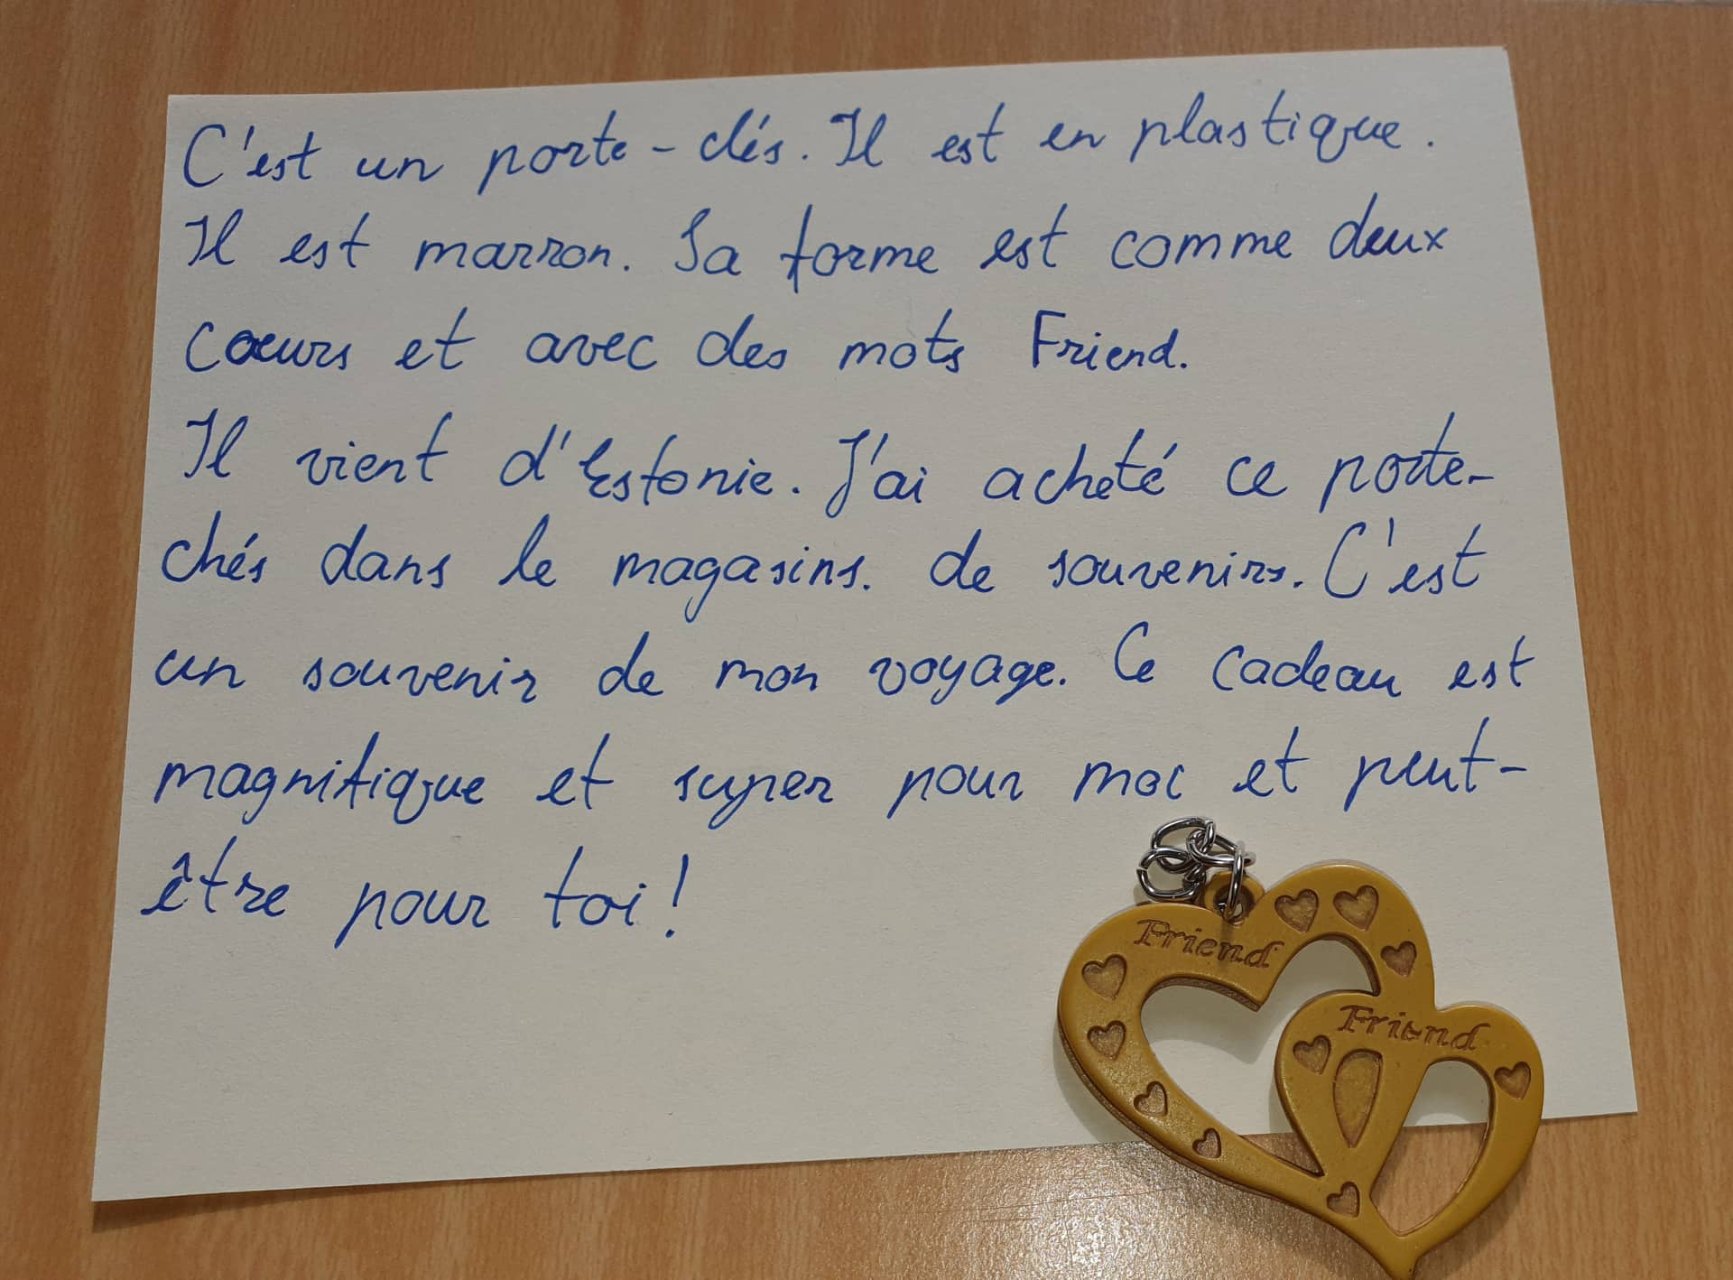 C'est un porte-clés. Il est en plastique.
Il est marron. Sa forme est comme deux
cœurs et avec des mots Friend.
Il vient d'Estonie. J'ai acheté ce porte-
chés dans le magasins. de souvenirs. C'est
un souvenir de mon voyage. Ce cadeau est
magnifique et super pour moi et peut-
être pour toi!
Friend
Friend